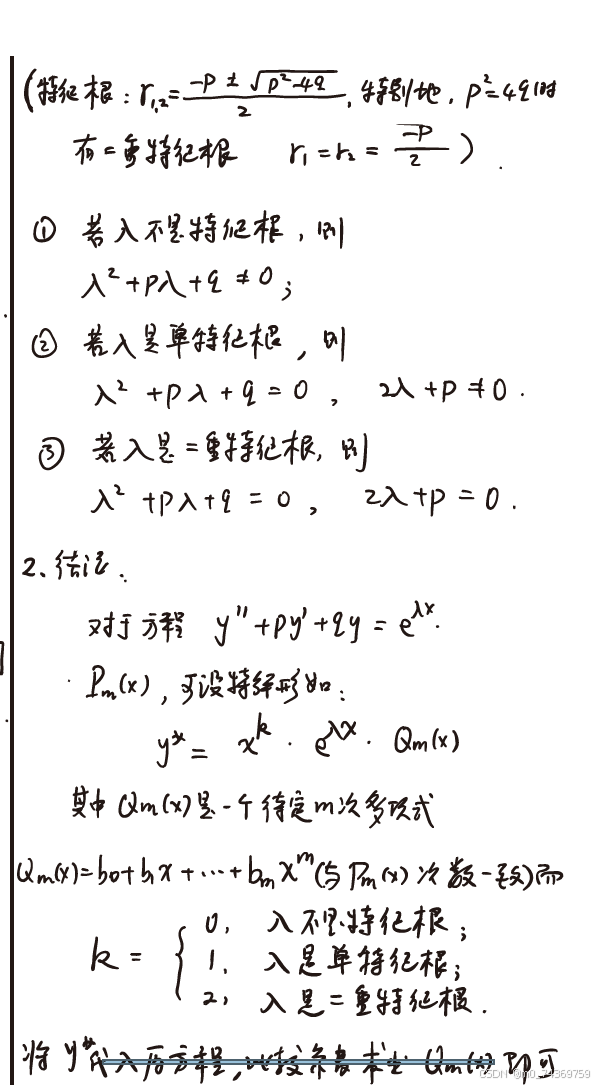 (特征根：r₁,₂ = (-p ± √(p²-4q))/2 , 特别地, p²=4q时
有二重特征根 r₁ = r₂ = -p/2 ) .
① 若λ不是特征根, 则
λ² + pλ + q ≠ 0 ;
② 若λ是单特征根, 则
λ² + pλ + q = 0 , 2λ + p ≠ 0 .
③ 若λ是二重特征根, 则
λ² + pλ + q = 0 , 2λ + p = 0 .
2. 结论.
对于方程 y'' + py' + qy = e^{λx} ·
· Pm(x) , 可设特解形如:
y* = x^k · e^{λx} · Qm(x)
其中 Qm(x)是一个待定m次多项式
Qm(x) = b₀ + b₁x + ⋯ + bₘx^m (与Pm(x)次数一致)而
k = {
0, λ不是特征根;
1, λ是单特征根;
2, λ是二重特征根.
将 y* 代入原方程, 比较系数求出 Qm(x) 即可
CSDN @m0_74369759